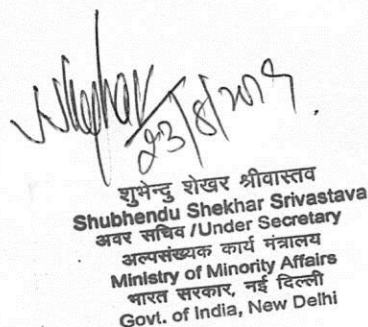 23/8/2019.
शुभेन्दु शेखर श्रीवास्तव
Shubhendu Shekhar Srivastava
अवर सचिव /Under Secretary
अल्पसंख्यक कार्य मंत्रालय
Ministry of Minority Affairs
भारत सरकार, नई दिल्ली
Govt. of India, New Delhi